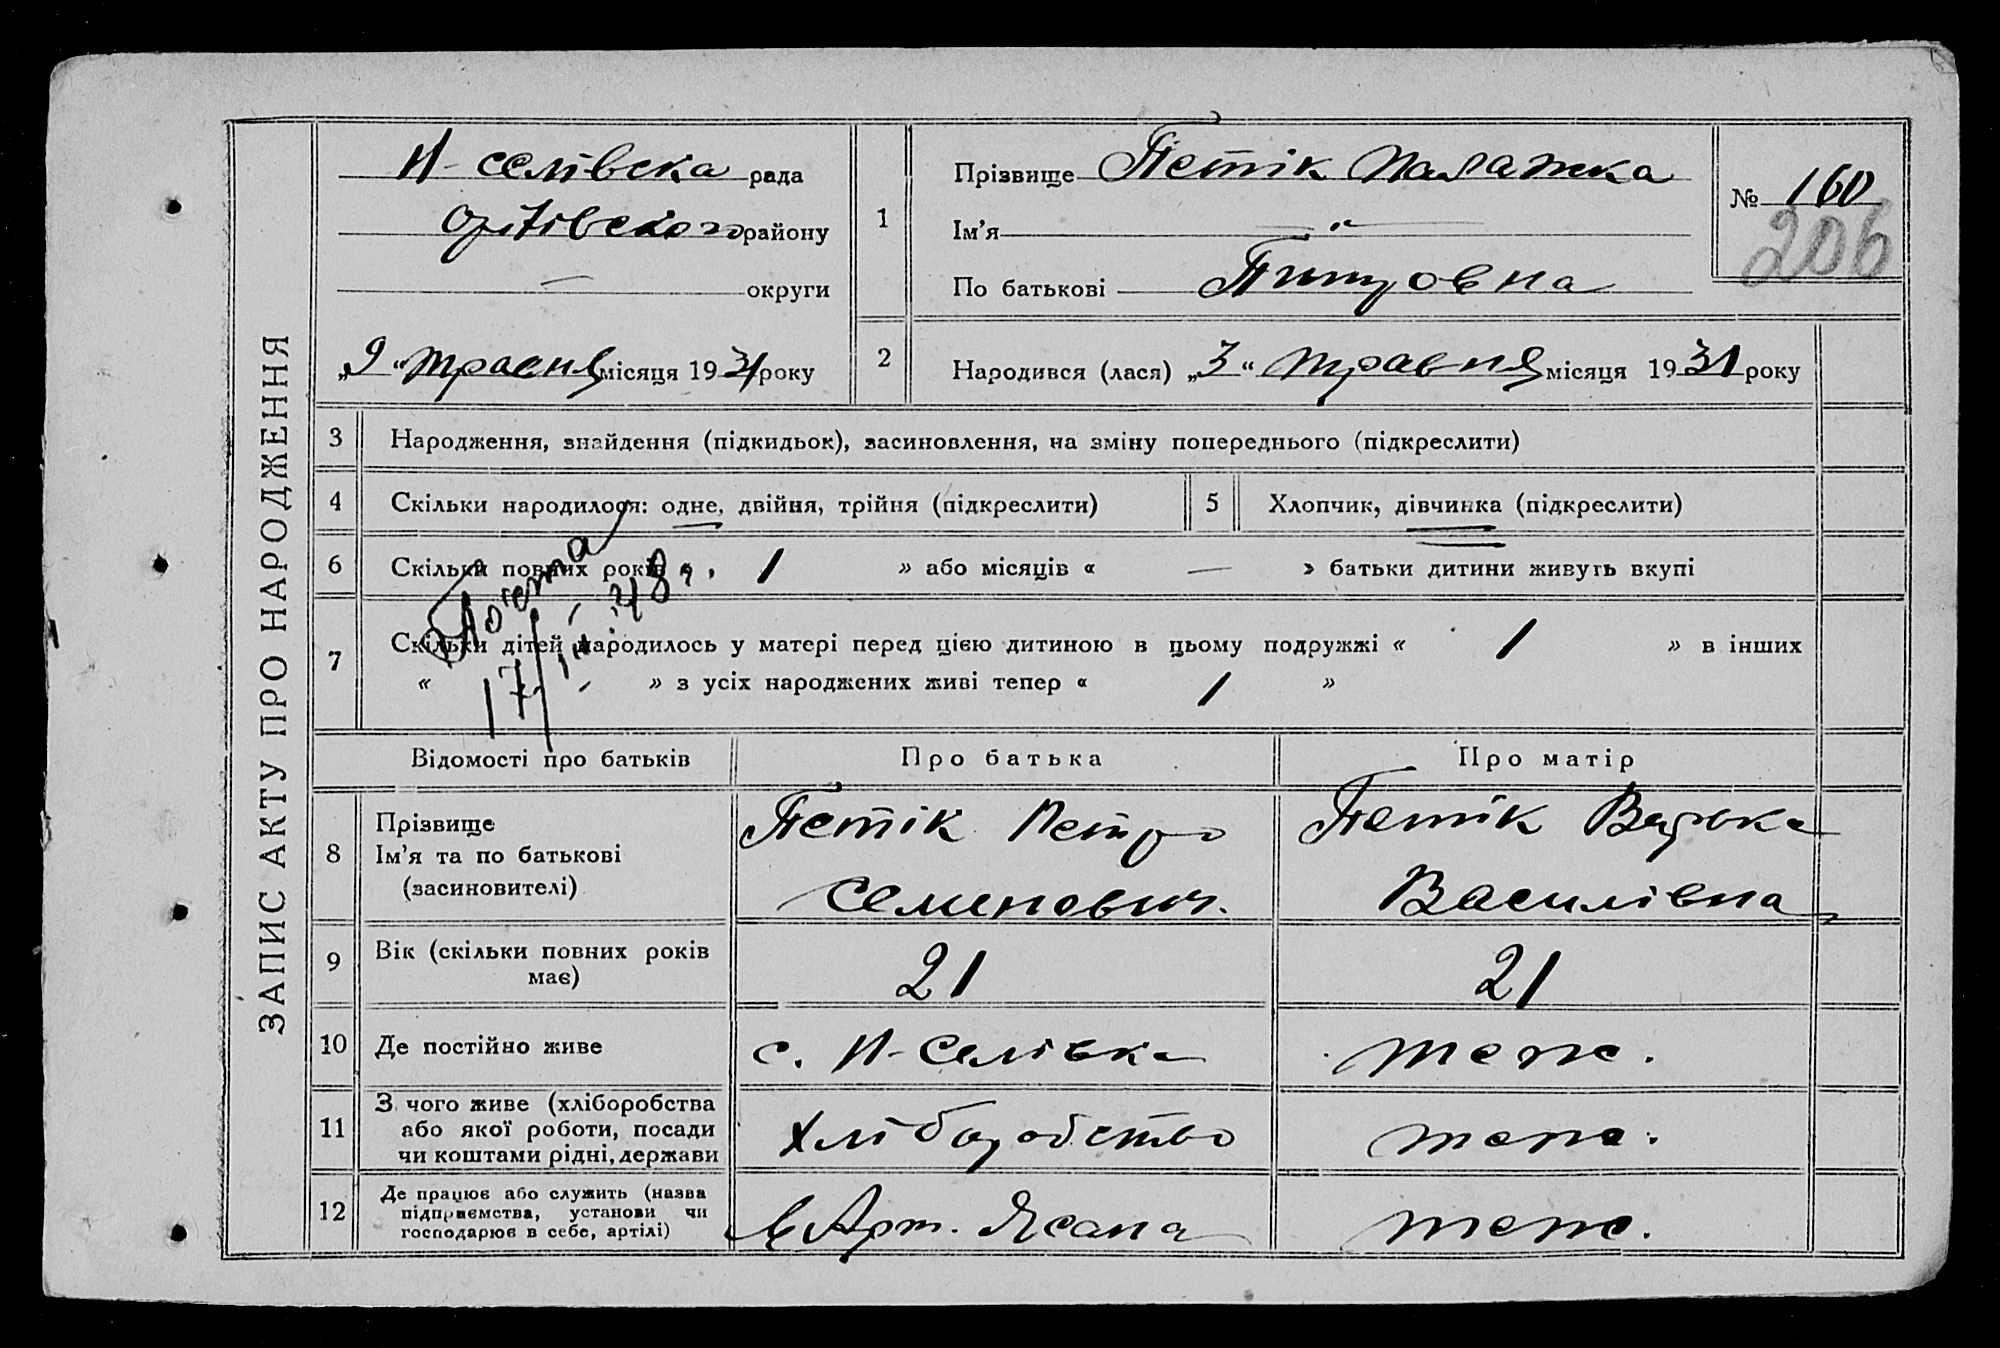 ЗАПИС АКТУ ПРО НАРОДЖЕННЯ
Н-селівска рада
району
— округи
„9“ травня місяця 1931 року
1
Прізвище Петік Палажка
Ім’я — " —
По батькові Питровна
№ 160
206
2
Народився (лася) „3“ травня місяця 1931 року
3 Народження, знайдення (підкидьок), засиновлення, на зміну попереднього (підкреслити)
4 Скільки народилося: одне, двійня, трійня (підкреслити)
5 Хлопчик, дівчинка (підкреслити)
6 Скільки повних років 1 » або місяців « — » батьки дитини живуть вкупі
7 Скільки дітей народилось у матері перед цією дитиною в цьому подружжі « 1 » в інших
« - » з усіх народжених живі тепер « 1 »
17/III 48 г.
Відомості про батьків
Про батька
Про матір
8
Прізвище
Ім’я та по батькові
(засиновителі)
Петік Петро
Семенович.
Петік
Василівна
9
Вік (скільки повних років
має)
21
21
10 Де постійно живе
с. Н-Селівка
теж.
11
З чого живе (хліборобства
або якої роботи, посади
чи коштами рідні, держави
Хліборобство
теж.
12
Де працює або служить (назва
підприємства, установи чи
господарює в себе, артілі)
в Арт.
теж.